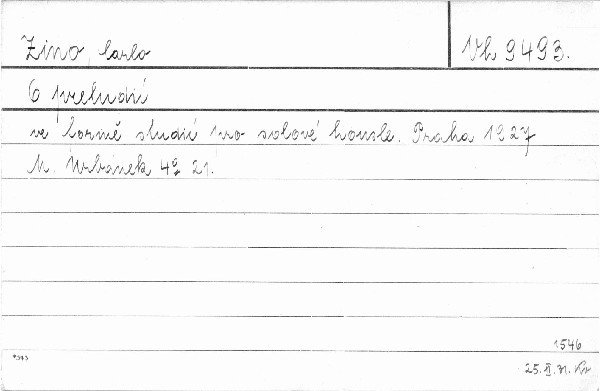 Zino, Carlo
Vh 9493.
6 preludií
ve formě studií pro solové housle. Praha 1927
M. Urbánek 4° 21.
1546
25. II. 71.